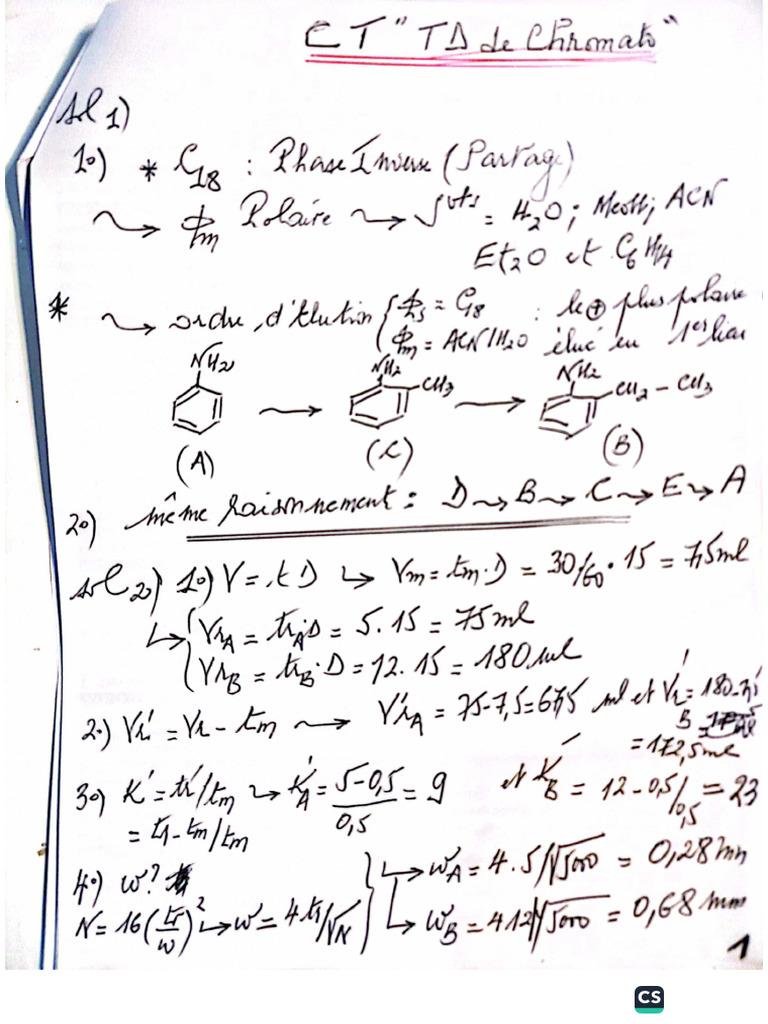 CT "TD de Chromato"
sol 1)
1o) * C18 : Phase Inverse (Partage)
⟿ ɸm Polaire ⟿ Svts = H2O ; MeOH ; ACN
Et2O et C6H14
* ⟿ ordre d'élution { ɸs = C18 : le ⊕ plus polaire
ɸm = ACN/H2O élué en 1er lieu
NH2 NH2 CH3 NH2 CH2 - CH3
(A) → (C) → (B)
2o) même raisonnement : D → B → C → E → A
sol 2) 1o) V = t D ↳ Vm = tm . D = 30/60 . 15 = 7,5 ml
↳ { VrA = trA . D = 5 . 15 = 75 ml
VrB = trB . D = 12 . 15 = 180 ml
2o) Vr' = Vr - tm ⟿ V'rA = 75-7,5 = 67,5 ml et Vr'B = 180-7,5
= 172,5 ml
3o) K' = tr'/tm ⟿ K'A = 5-0,5/0,5 = 9 et K'B = 12-0,5/0,5 = 23
= tr-tm/tm
4o) w ? ↳ wA = 4.5/√5000 = 0,28 mn
N = 16 (tr/w)² ↳ w = 4 tr/√N ↳ wB = 4 12/√5000 = 0,68 mm
1
CS